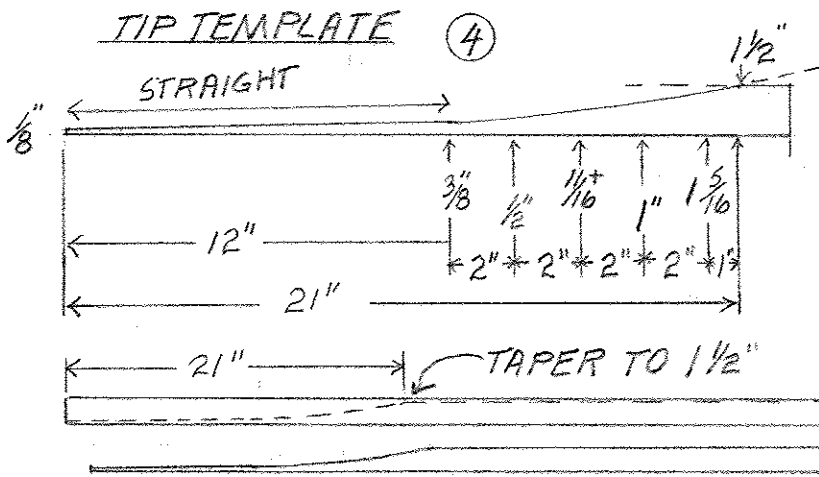 TIP TEMPLATE ④
1 1/2"
STRAIGHT
1/8"
3/8" 1/2" 11/16+ 1" 1 5/16
12" 2" 2" 2" 2" 1"
21"
21" TAPER TO 1 1/2"